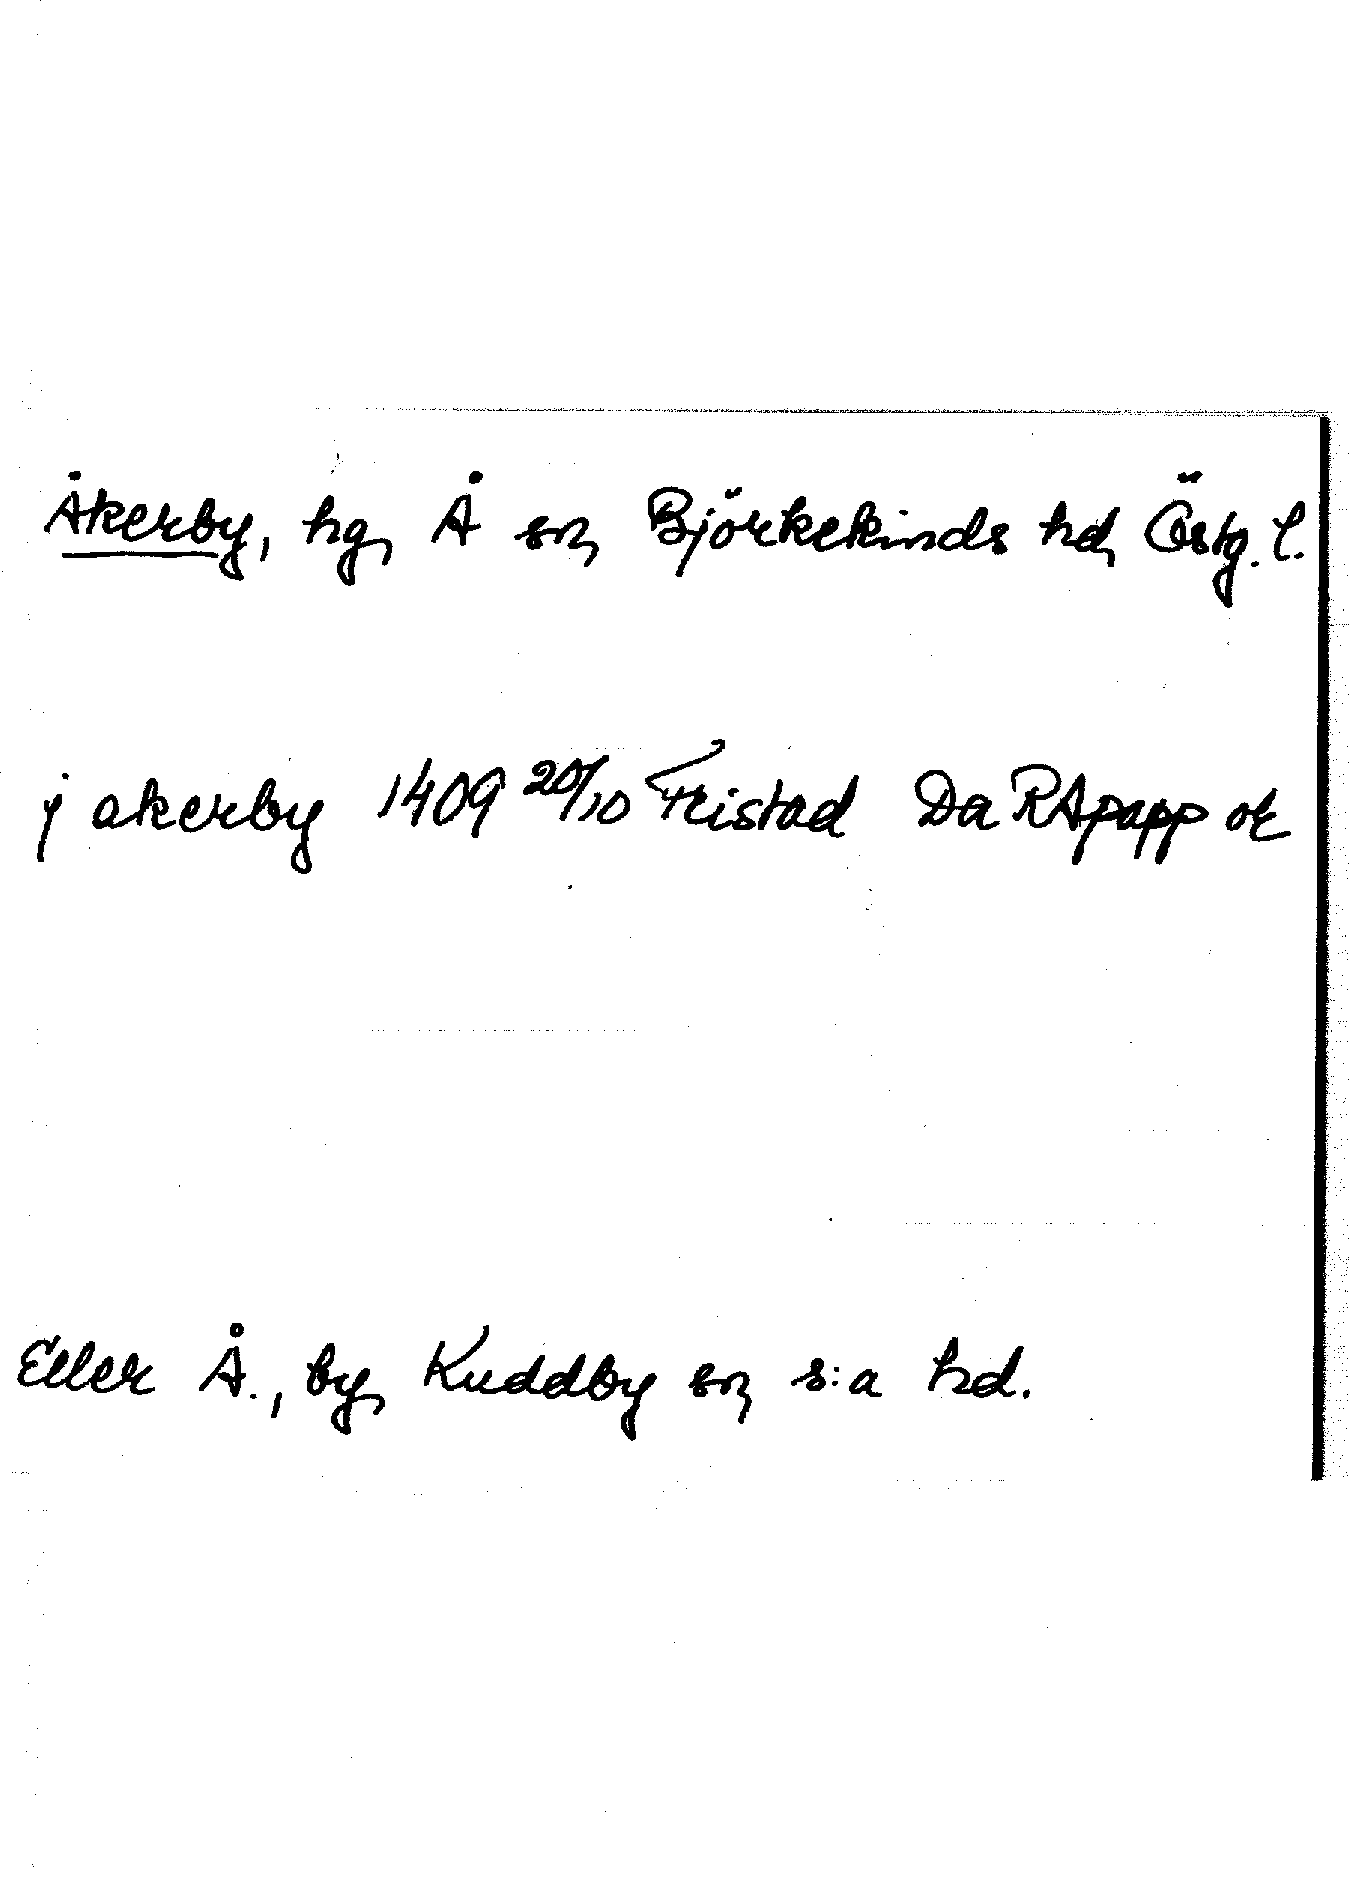 Åkerby, hg, Å sn, Björkekinds hd, Östg. l.
j akerby 1409 20/10 Fristad Da RApapp or
Eller Å., by, Kuddby sn, s:a hd.